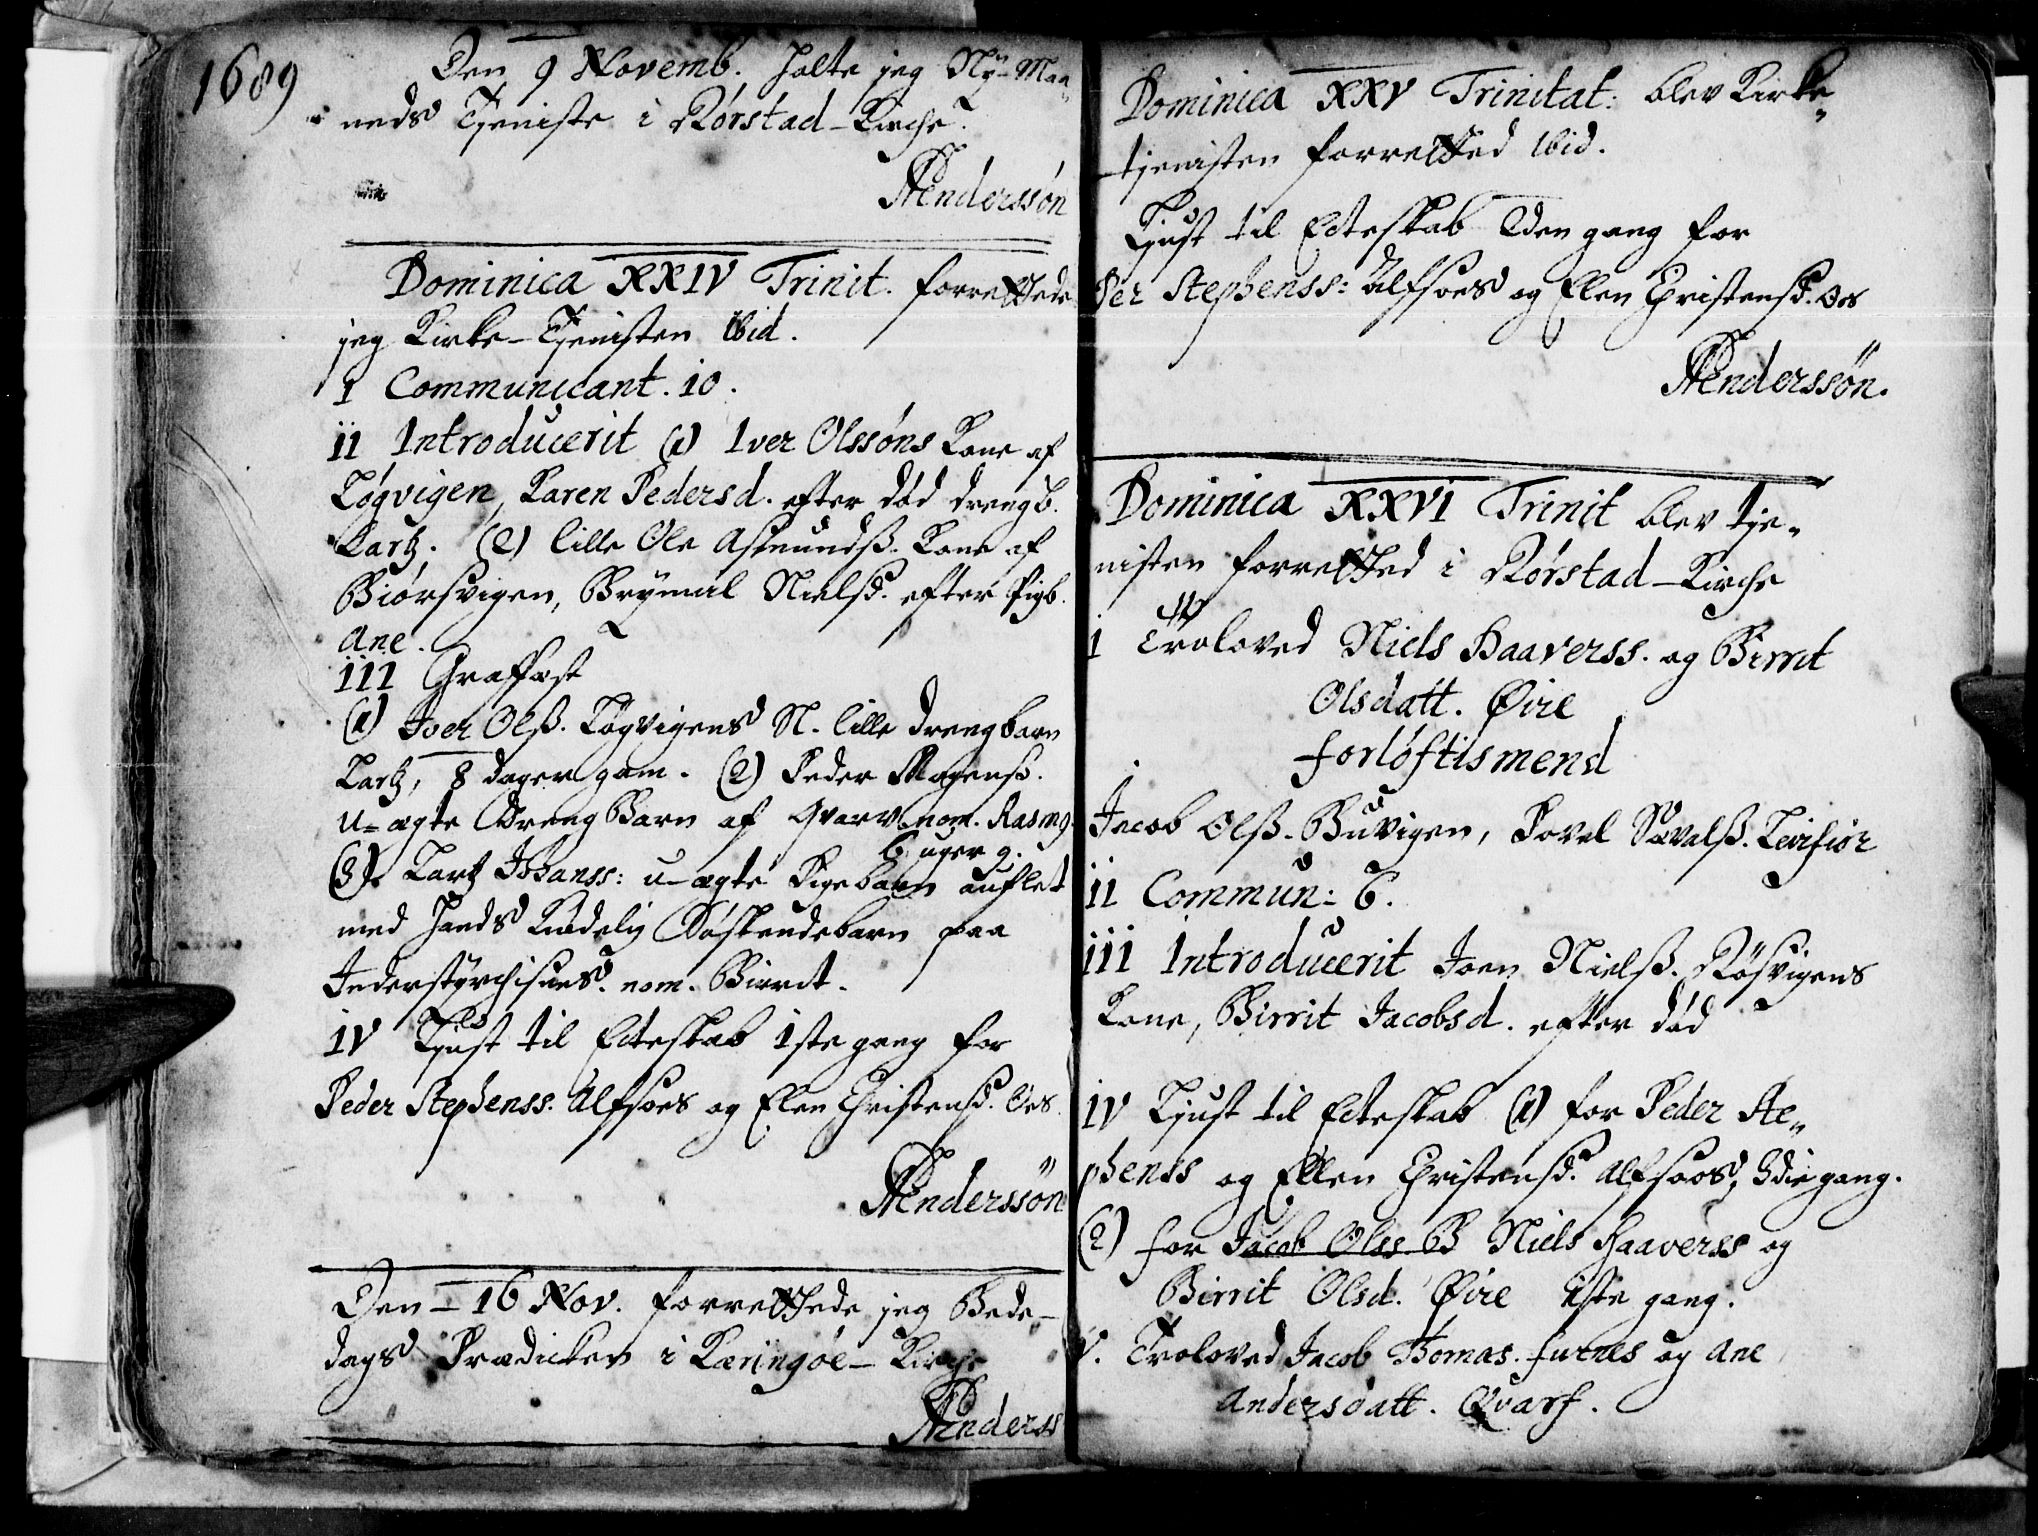 1689
Den 9 Novemb. holte jeg Ny-Maa„
neds Tjeniste i Rørstad-Kirche.
PAnderssøn
Dominica XXIV Trinit. forrettede
jeg Kirke-Tjenisten Ibid.
I Communicant. 10.
II Introducerit (1) Iver Olssøns Kone af
Løgvigen, Karen Pedersd. efter død drengb.
Lartz. (2) lille Ole Asmundss. Kone af
Biørsvigen, Brynnil Nielsd. efter Pigb.
Ane.
III Graffæst
(1) Iver Olss. Løgvigens N. lille drengbarn
Lartz, 8 dager gam. (2) Peder Mogenss.
u-ægte Dreng Barn af Qvarv nom. Rasmg.
6 uger g.
(3) Lartz Johanss: u-ægte Pigebarn auflet
med hands Kiødelig Søskendebarn paa
nom. Birrit.
IV Liust til Ecteskab 1ste gang for
Peder Stephenss. Alfsoes og Elen Christensd. Oes.
PAnderssøn
Den 16 Nov. forrettede jeg Bede-
dags Prædicken i Kæringøe-Kirche
PAnderss
Dominica XXV Trinitat: blev Kirke„
tjenisten forretted Ibid.
Liust til Ecteskab 2den gang for
Per Stephenss: Alfsoes og Elen Christensd. Oes
PAnderssøn.
Dominica XXVI Trinit blev tje„
nisten forretted i Rørstad-Kirche
I Troloved Niels Haaverss. og Birrit
Olsdatt. Øire
forløftismend
Jacob Olss. Buvigen, Povel Sævalss. Leirfior
II Commun: 6.
III Introducerit Joen Nielss. Røsvigens
Kone, Birrit Jacobsd. efter død
IV Liust til Ecteskab (1) for Peder Ste„
phenss og Ellen Christensd. Alfsoes, 3die gang.
(2) for Jacob Olss B Niels Haaverss og
Birrit Olsd. Øire 1ste gang.
V. Troloved Jacob Thomas. furnes og Ane
Andersdatt. Qvarf.